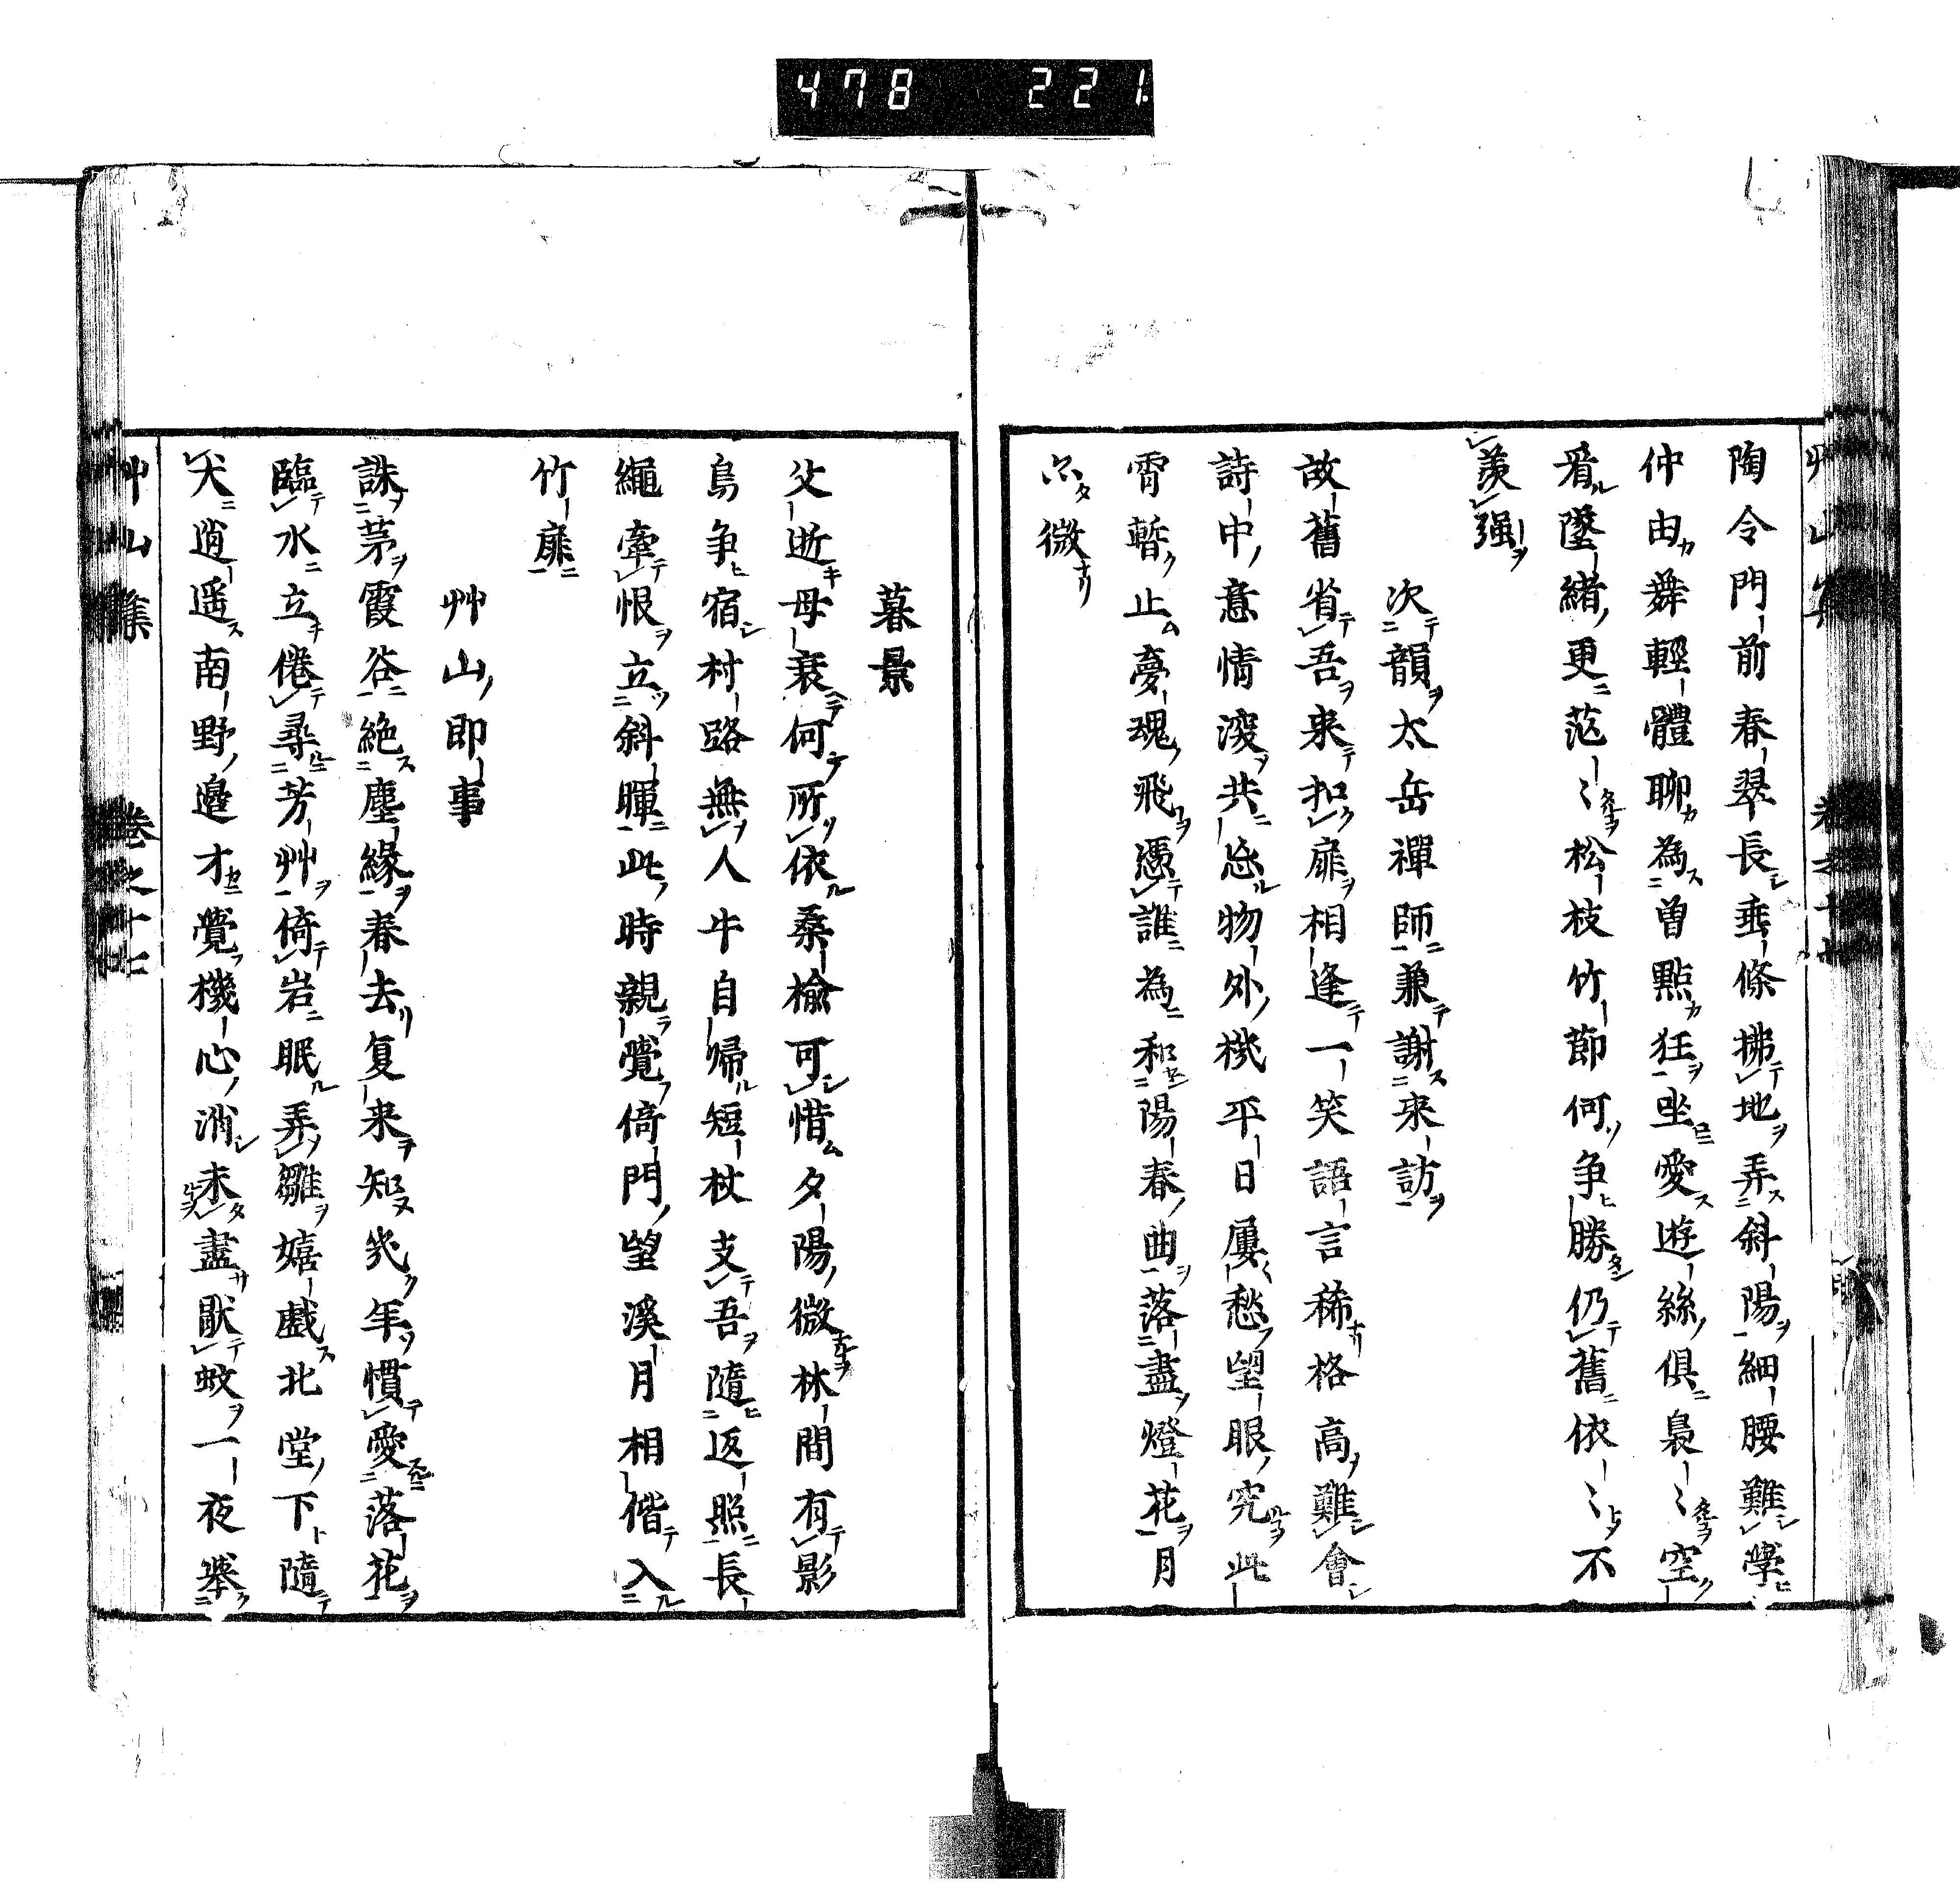 478 221
陶令門前春翠長垂條拂地弄斜陽細腰難學
仲由舞輕體聊為曽點狂坐愛遊絲俱裊〻空
看墜緒更茫〻松枝竹節何争勝仍舊依〻不
羨强
次韻太岳禪師兼謝來訪
故舊省吾来扣扉相逢一笑語言稀格高難會
詩中意情深共忘物外機平日屢愁望眼究此
霄暫止夢魂飛憑誰為和陽春曲落盡燈花月
亦微
暮景
父逝母衰何所依桑榆可惜夕陽微林間有影
鳥争宿村路無人牛自帰短杖支吾隨返照長
繩牽恨立斜暉此時親覺倚門望溪月相偕入
竹扉
艸山即事
誅茅霞谷絶塵緣春去复来知幾年慣愛落花
臨水立倦尋芳艸倚岩眠弄雛嬉戲北堂下隨
犬逍遥南野邊才覺機心消未盡猒蚊一夜擧
艸山集 卷之十七